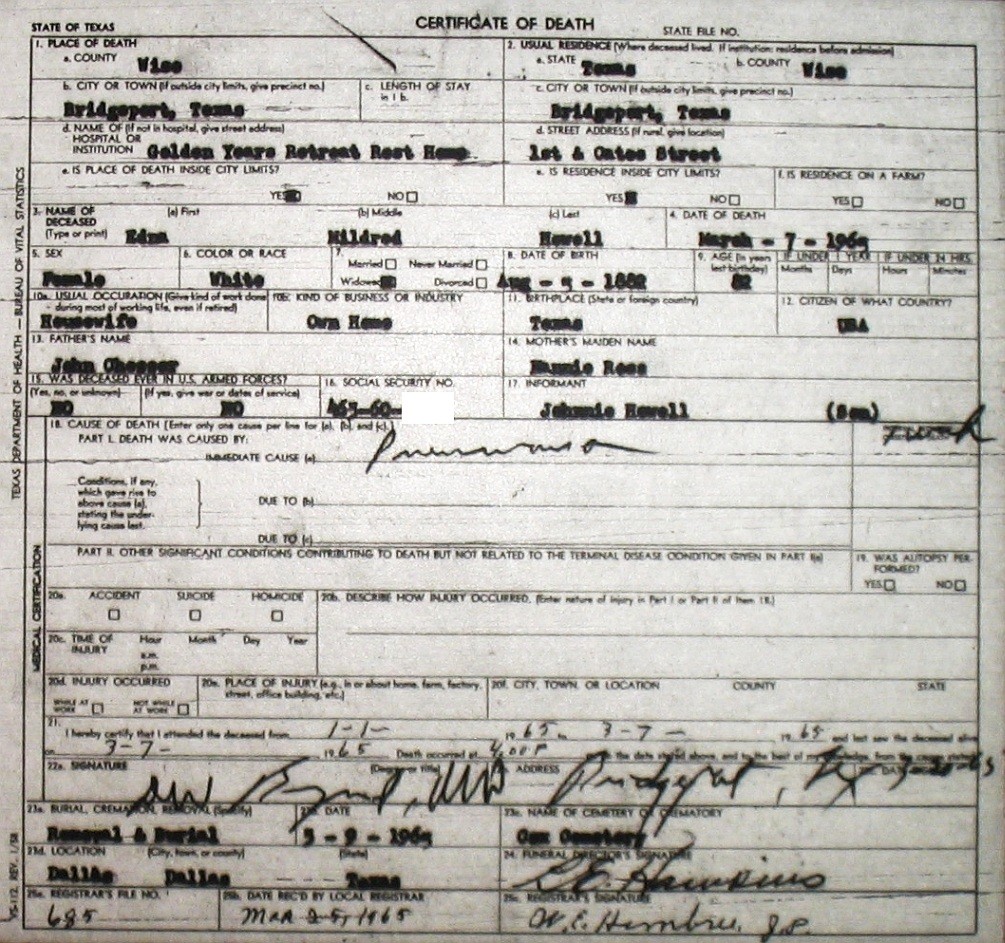 STATE OF TEXAS
CERTIFICATE OF DEATH
STATE FILE NO.
1. PLACE OF DEATH
a. COUNTY Wise
2. USUAL RESIDENCE (Where deceased lived. If institution: residence before admission)
a. STATE Texas b. COUNTY Wise
b. CITY OR TOWN (If outside city limits, give precinct no.)
Bridgeport, Texas
c. LENGTH OF STAY
in 1 b.
c. CITY OR TOWN (If outside city limits, give precinct no.)
Bridgeport, Texas
d. NAME OF (If not in hospital, give street address)
HOSPITAL OR
INSTITUTION Golden Years Retreat Rest Home
d. STREET ADDRESS (If rural, give location)
1st & Cates Street
e. IS PLACE OF DEATH INSIDE CITY LIMITS?
YES NO
e. IS RESIDENCE INSIDE CITY LIMITS?
YES NO
f. IS RESIDENCE ON A FARM?
YES NO
3. NAME OF
DECEASED
(Type or print)
(a) First (b) Middle (c) Last
Edna Mildred Howell
4. DATE OF DEATH
March - 7 - 1965
5. SEX
Female
6. COLOR OR RACE
White
7.
Married Never Married
Widowed Divorced
8. DATE OF BIRTH
Aug - 5 - 1882
9. AGE (In years
last birthday)
82
IF UNDER 1 YEAR
Months Days
IF UNDER 24 HRS.
Hours Minutes
10a. USUAL OCCUPATION (Give kind of work done
during most of working life, even if retired)
Housewife
10b. KIND OF BUSINESS OR INDUSTRY
Own Home
11. BIRTHPLACE (State or foreign country)
Texas
12. CITIZEN OF WHAT COUNTRY?
USA
13. FATHER'S NAME
John
14. MOTHER'S MAIDEN NAME
Nannie Ross
15. WAS DECEASED EVER IN U.S. ARMED FORCES?
(Yes, no, or unknown) (If yes, give war or dates of service)
NO NO
16. SOCIAL SECURITY NO.
463-60-
17. INFORMANT
Johnnie Howell (Son)
18. CAUSE OF DEATH [Enter only one cause per line for (a), (b), and (c).]
PART I. DEATH WAS CAUSED BY:
IMMEDIATE CAUSE (a) Pneumonia
Conditions, if any,
which gave rise to
above cause (a),
stating the under-
lying cause last.
DUE TO (b)
DUE TO (c)
PART II. OTHER SIGNIFICANT CONDITIONS CONTRIBUTING TO DEATH BUT NOT RELATED TO THE TERMINAL DISEASE CONDITION GIVEN IN PART I(a)
19. WAS AUTOPSY PER-
FORMED?
YES NO
20a. ACCIDENT SUICIDE HOMICIDE
20b. DESCRIBE HOW INJURY OCCURRED. (Enter nature of injury in Part I or Part II of Item 18.)
20c. TIME OF
INJURY
Hour Month Day Year
a.m.
p.m.
20d. INJURY OCCURRED
WHILE AT
WORK
NOT WHILE
AT WORK
20e. PLACE OF INJURY (e.g., in or about home, farm, factory,
street, office building, etc.)
20f. CITY, TOWN, OR LOCATION COUNTY STATE
21.
I hereby certify that I attended the deceased from 1-1- 1965 to 3-7- 1965 and last saw the deceased alive
on 3-7- 1965 Death occurred at 4:00 P on the date stated above, and to the best of my knowledge, from the causes stated
22a. SIGNATURE (Degree or title) ADDRESS DATE
MD Bridgeport, Tex
23a. BURIAL, CREMATION, REMOVAL (Specify)
Removal & Burial
23b. DATE
3 - 9 - 1965
23c. NAME OF CEMETERY OR CREMATORY
Cox Cemetery
23d. LOCATION (City, town, or county) (State)
Dallas Dallas Texas
24. FUNERAL DIRECTOR'S SIGNATURE
Hawkins
25a. REGISTRAR'S FILE NO.
685
25b. DATE REC'D BY LOCAL REGISTRAR
Mar 25, 1965
25c. REGISTRAR'S SIGNATURE
W. E. Hembree J.P.
TEXAS DEPARTMENT OF HEALTH — BUREAU OF VITAL STATISTICS
MEDICAL CERTIFICATION
VS-112 REV. 1/58